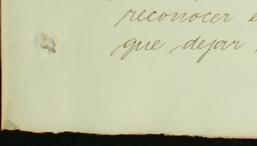 reconocer e
que dejar